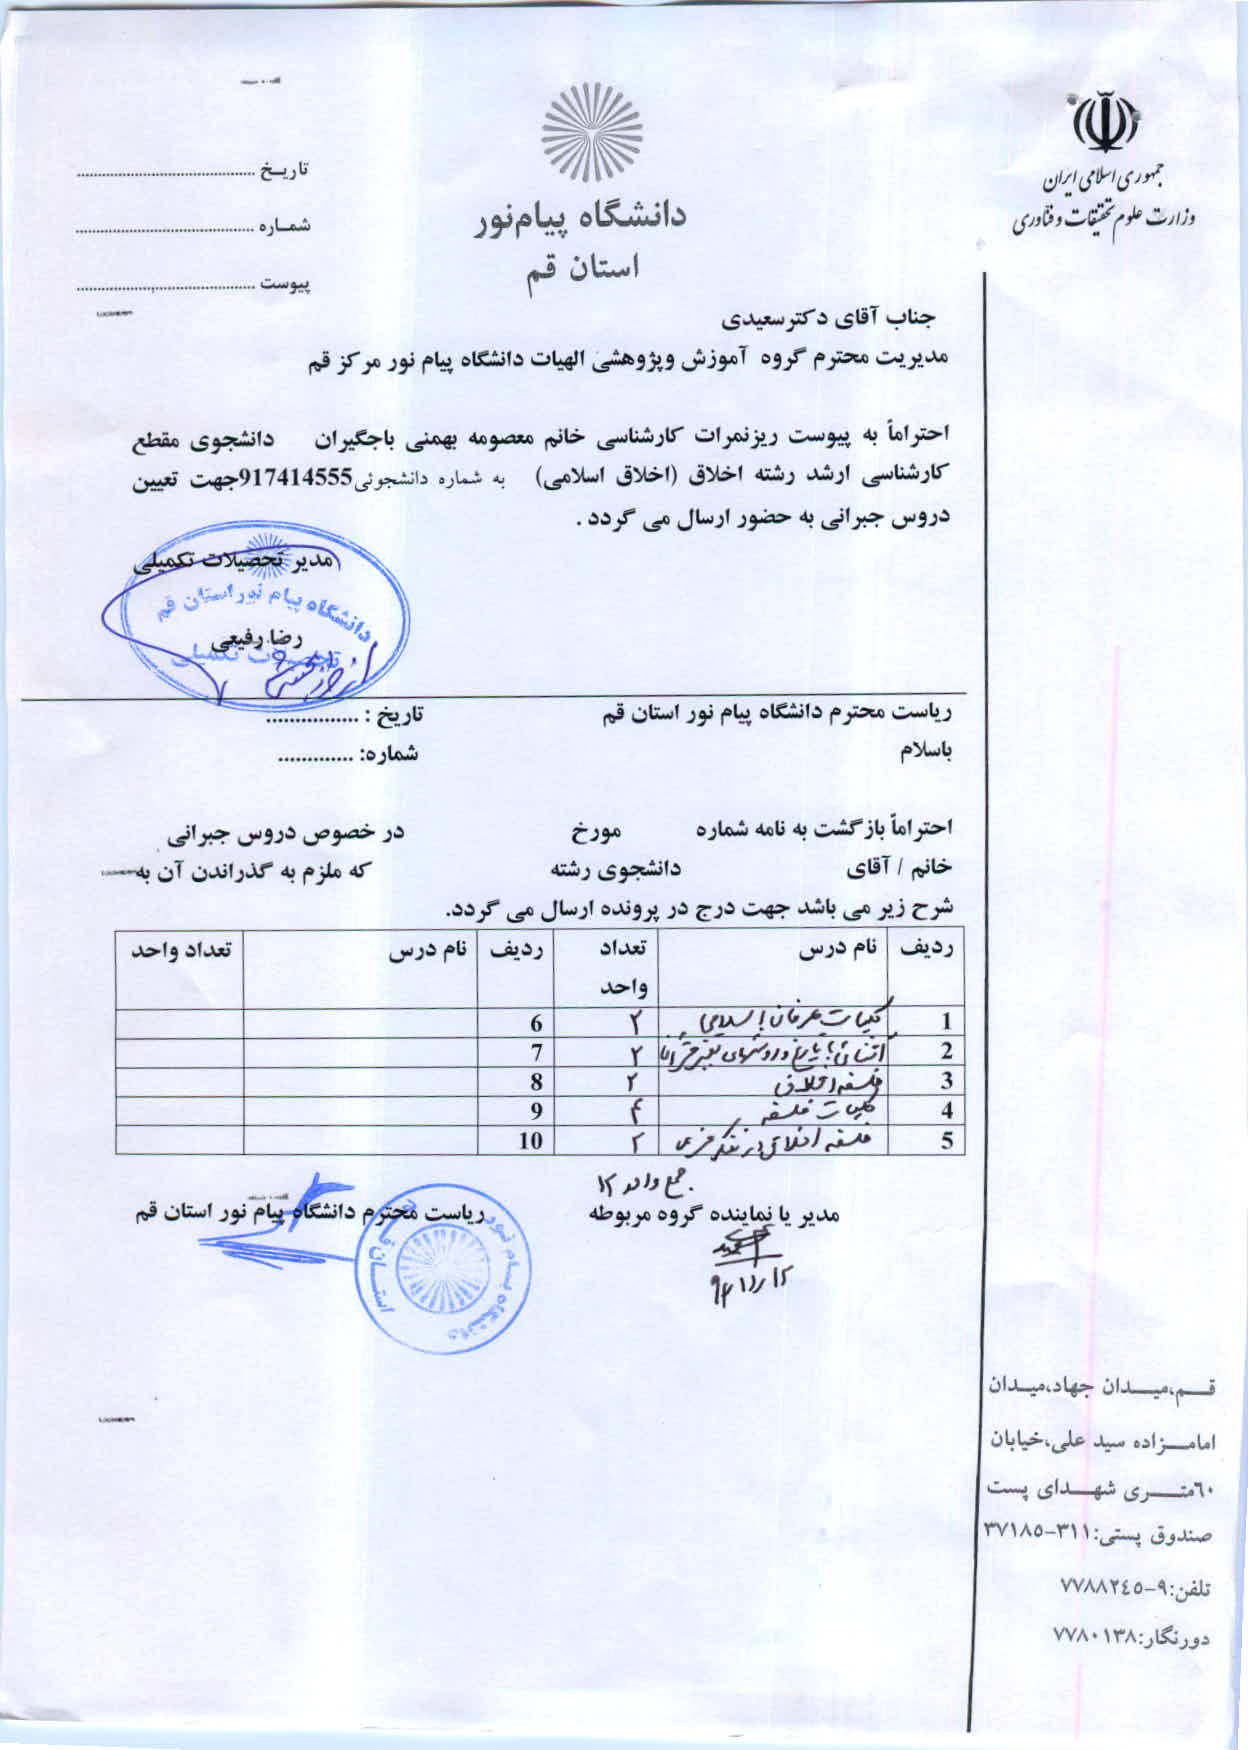 جمهوری اسلامی ایران
وزارت علوم تحقیقات و فناوری
دانشگاه پیام‌نور
استان قم
تاریخ ........................................
شماره ........................................
پیوست ........................................
جناب آقای دکترسعیدی
مدیریت محترم گروه آموزش وپژوهشی الهیات دانشگاه پیام نور مرکز قم
احتراماً به پیوست ریزنمرات کارشناسی خانم معصومه بهمنی باجگیران دانشجوی مقطع
کارشناسی ارشد رشته اخلاق (اخلاق اسلامی) به شماره دانشجوئی917414555جهت تعیین
دروس جبرانی به حضور ارسال می گردد .
مدیر تحصیلات تکمیلی
دانشگاه پیام نور استان قم
رضا رفیعی
تحصیلات تکمیلی
ریاست محترم دانشگاه پیام نور استان قم تاریخ : ................
باسلام شماره: .............
احتراماً بازگشت به نامه شماره مورخ در خصوص دروس جبرانی
خانم / آقای دانشجوی رشته که ملزم به گذراندن آن به
شرح زیر می باشد جهت درج در پرونده ارسال می گردد.
ردیف نام درس تعداد واحد ردیف نام درس تعداد واحد
1 کلیات عرفان اسلامی ۲ 6
2 آشنائی با تاریخ و روشهای تفسیر قرآن ۲ 7
3 فلسفه اخلاق ۲ 8
4 کلیات فلسفه ۴ 9
5 فلسفه اخلاق در تفکر غربی ۲ 10
جمع واحد ۱۲
مدیر یا نماینده گروه مربوطه ریاست محترم دانشگاه پیام نور استان قم
دانشگاه پیام نور استان قم
قم،میدان جهاد،میدان
امامزاده سید علی،خیابان
۶۰متری شهدای پست
صندوق پستی:۳۱۱-۳۷۱۸۵
تلفن:۹-۷۷۸۸۲۴۵
دورنگار:۷۷۸۰۱۳۸